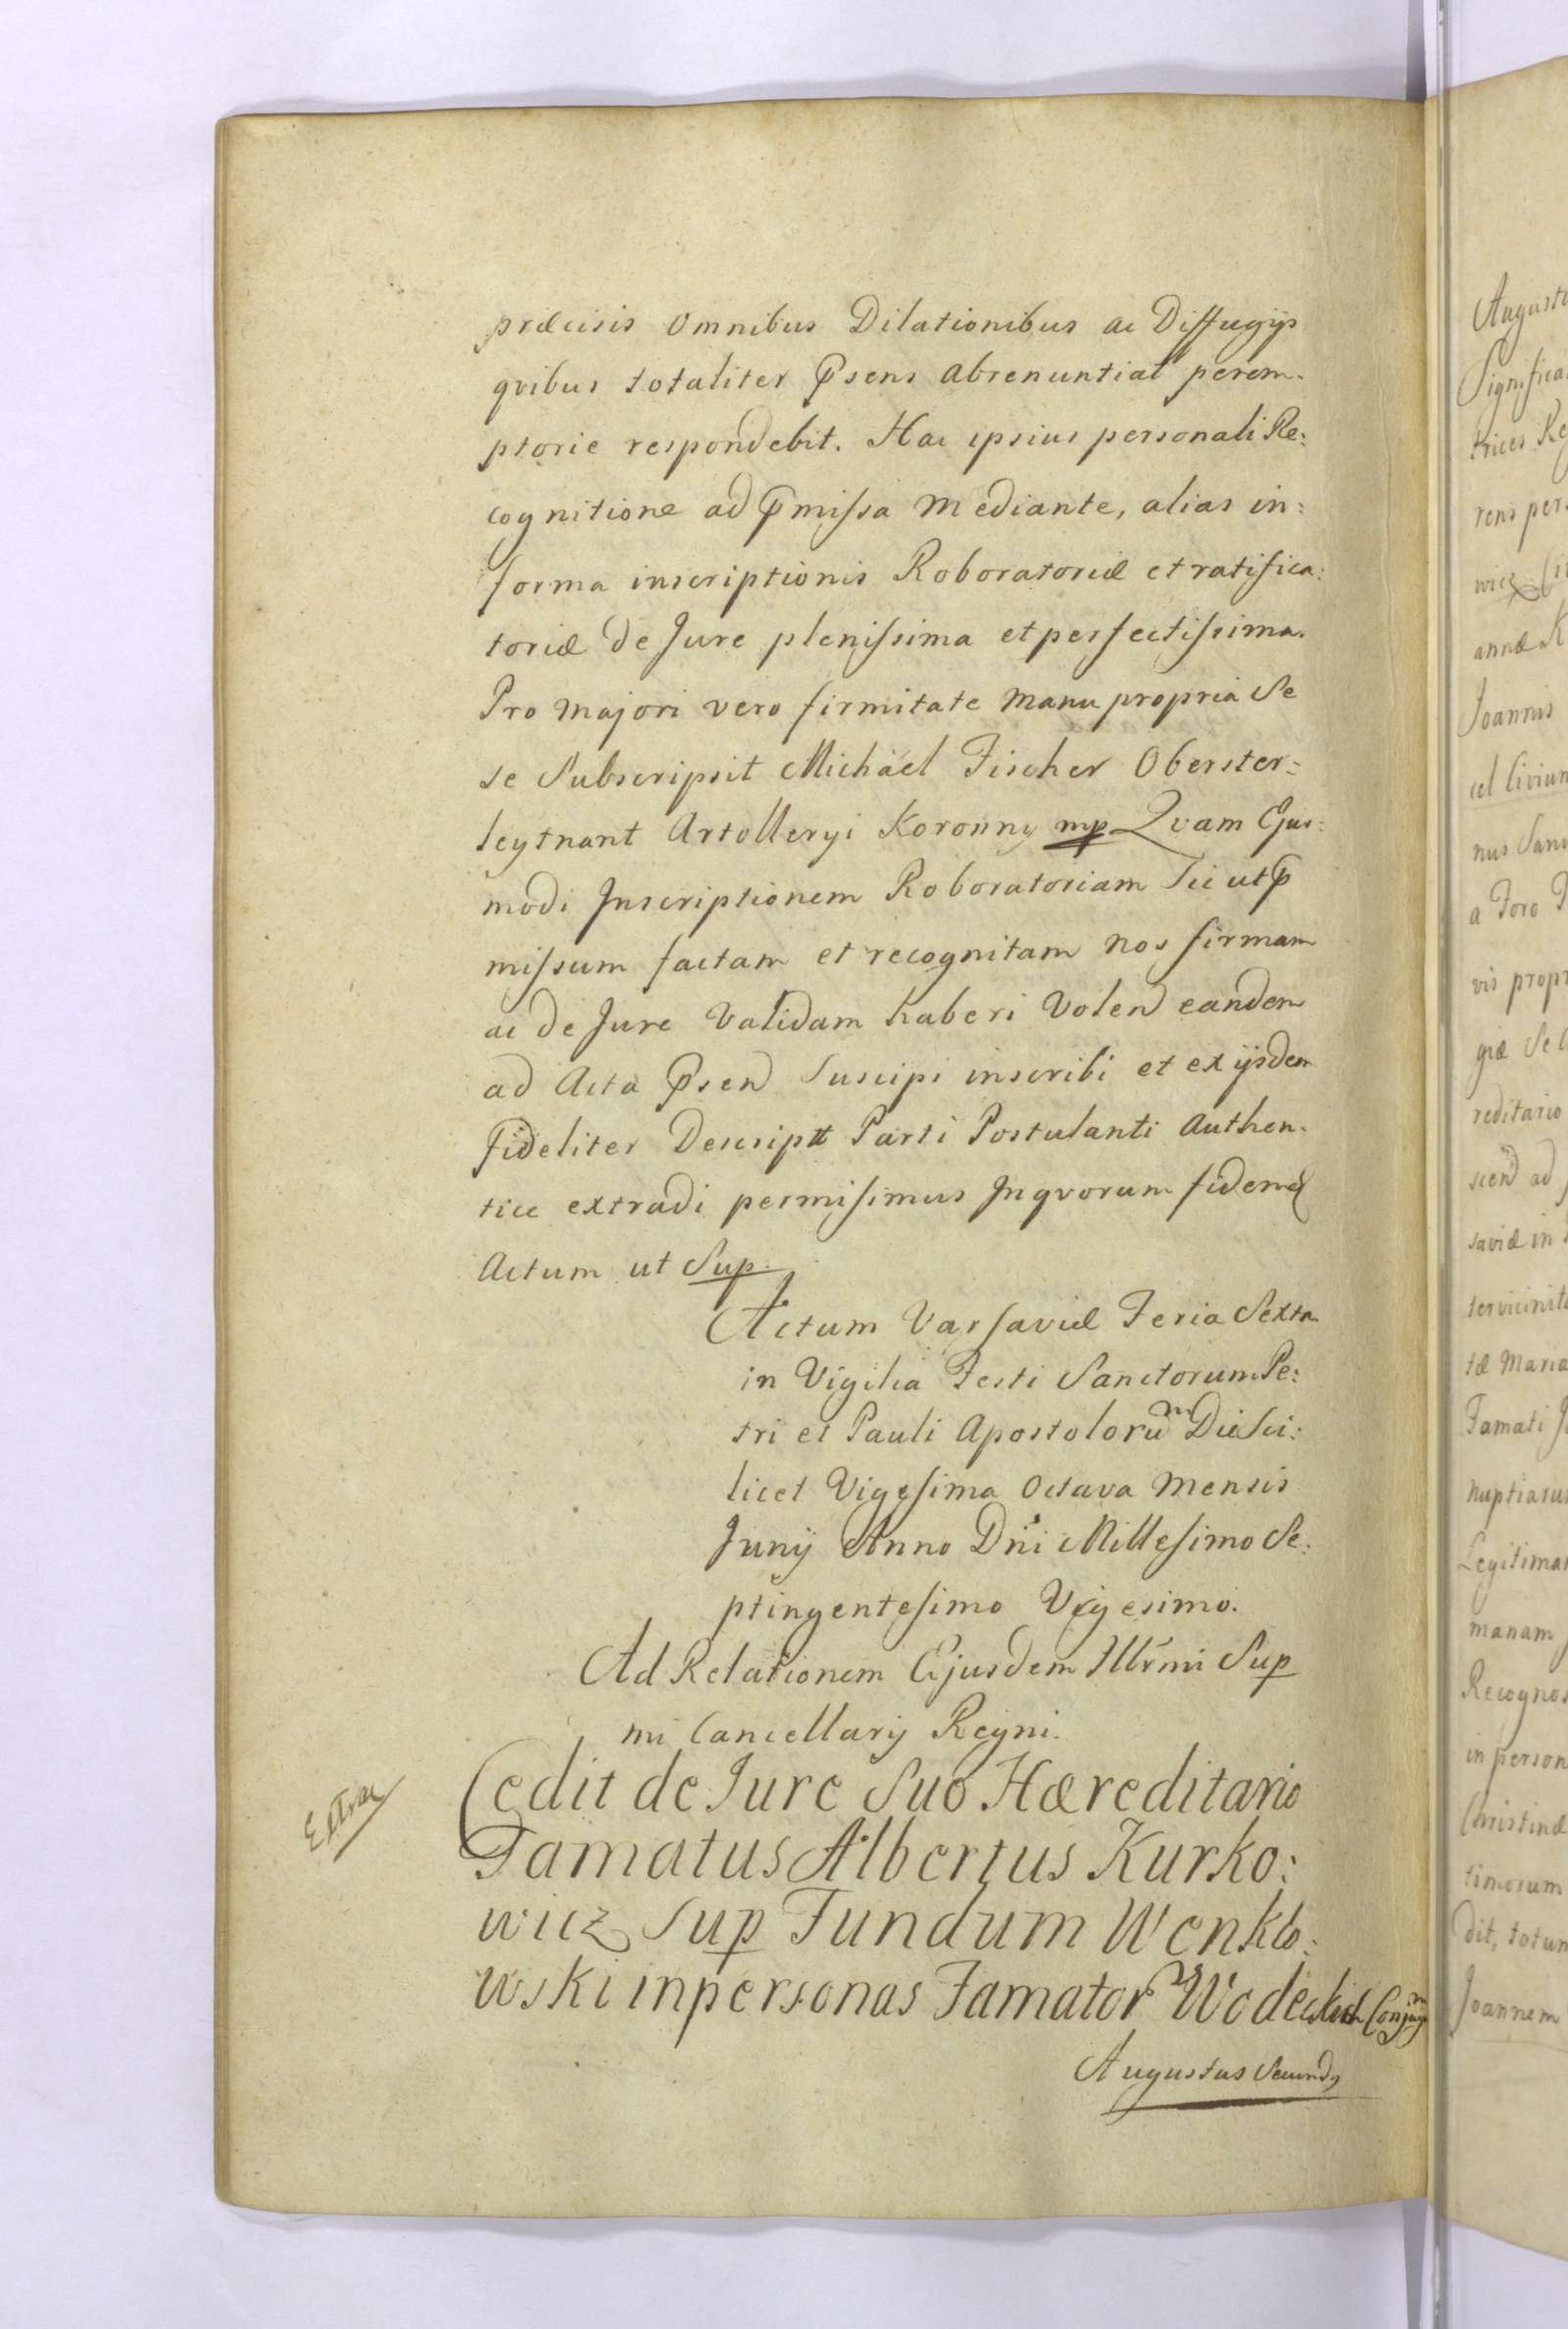 præcisis omnibus Dilationibus ac Diffugijs
qvibus totaliter Psens abrenuntiat perem-
ptorie respondebit. Hac ipsius personali Re:
cognitione ad Pmissa mediante, alias in:
forma inscriptionis Roboratoriæ et ratifica:
toriæ de Jure plenissima et perfectissima.
Pro majori vero firmitate manu propria Se
se Subscripsit Michäel Fischer Oberster=
leytnant Artolleryi Koronny mp Qvam Ejus:
modi Inscriptionem Roboratoriam Sic ut P
missum factam et recognitam nos firmam
ac de Jure Validam haberi Volend eandem
ad Acta Psend Suscipi inscribi et ex ijsdem
fideliter Descript Parti Postulanti Authen-
tice extradi permisimus Inqvorum fidem
Actum ut Sup.
Actum Varsaviæ Feria Sexta
in Vigilia Festi Sanctorum Pe:
tri et Pauli Apostolorum Die Sci:
licet Vigesima Octava Mensis
Junij Anno Dni Millesimo Se:
ptingentesimo Vigesimo.
Ad Relationem Ejusdem Illrmi Sup
mi Cancellarij Regni.
Extrac
Cedit de Jure Suo Hæreditario
Famatus Albertus Kurko:
wicz Sup Fundum Wenklo:
wski in personas Famator Wodeckich Conjugm
Augustus Secund9
Augustu
Significa
trices Re
rens per
wicz
annæ K
Joannis
cel Civium
nus Sanc
a Foro
vis propr
giæ Se
reditario
scend ad
saviæ in
tervicinit
tæ Maria
Famati J
nuptiarum
Legitimam
manam
Recognos
in person
Christinæ
timorum
dit, totum
Joannem